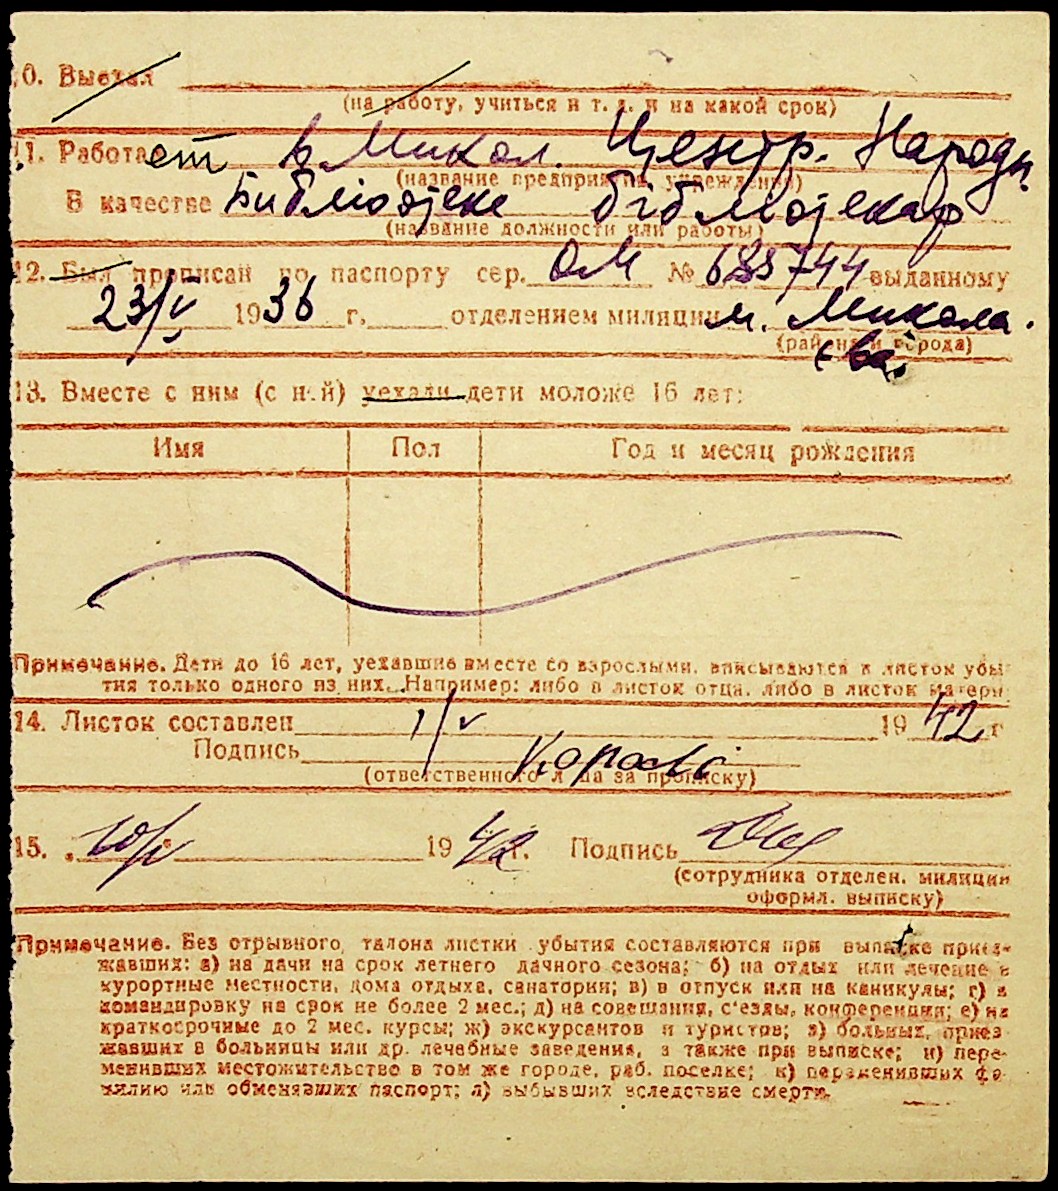 10. Выехал
(на работу, учиться и т. д. и на какой срок)
11. Работает в Микол. Центр. Народн.
(название предприятия, учреждения)
В качестве Библіотеке бібліотекар
(название должности или работы)
12. Был прописан по паспорту сер. ОМ № 689744 выданному
23/V 1936 г. отделением милиции м. Микола-
(района и города)
ева.
13. Вместе с ним (с ней) уехали дети моложе 16 лет:
Имя Пол Год и месяц рождения
Примечание. Дети до 16 лет, уехавшие вместе со взрослыми, вписываются в листок убы-
тия только одного из них. Например: либо в листок отца, либо в листок матери
14. Листок составлен 1/V 1942 г
Подпись
(ответственного лица за прописку)
15. 10/V 1942 г. Подпись
(сотрудника отделен. милиции
оформл. выписку)
Примечание. Без отрывного талона листки убытия составляются при выписке приез-
жавших: а) на дачи на срок летнего дачного сезона; б) на отдых или лечение в
курортные местности, дома отдыха, санатории; в) в отпуск или на каникулы; г) в
командировку на срок не более 2 мес.; д) на совещания, с'езды, конференции; е) на
краткосрочные до 2 мес. курсы; ж) экскурсантов и туристов; з) больных, приез-
жавших в больницы или др. лечебные заведения, а также при выписке; и) пере-
менивших местожительство в том же городе, раб. поселке; к) переменивших фа-
милию или обменявших паспорт; л) выбывших вследствие смерти.